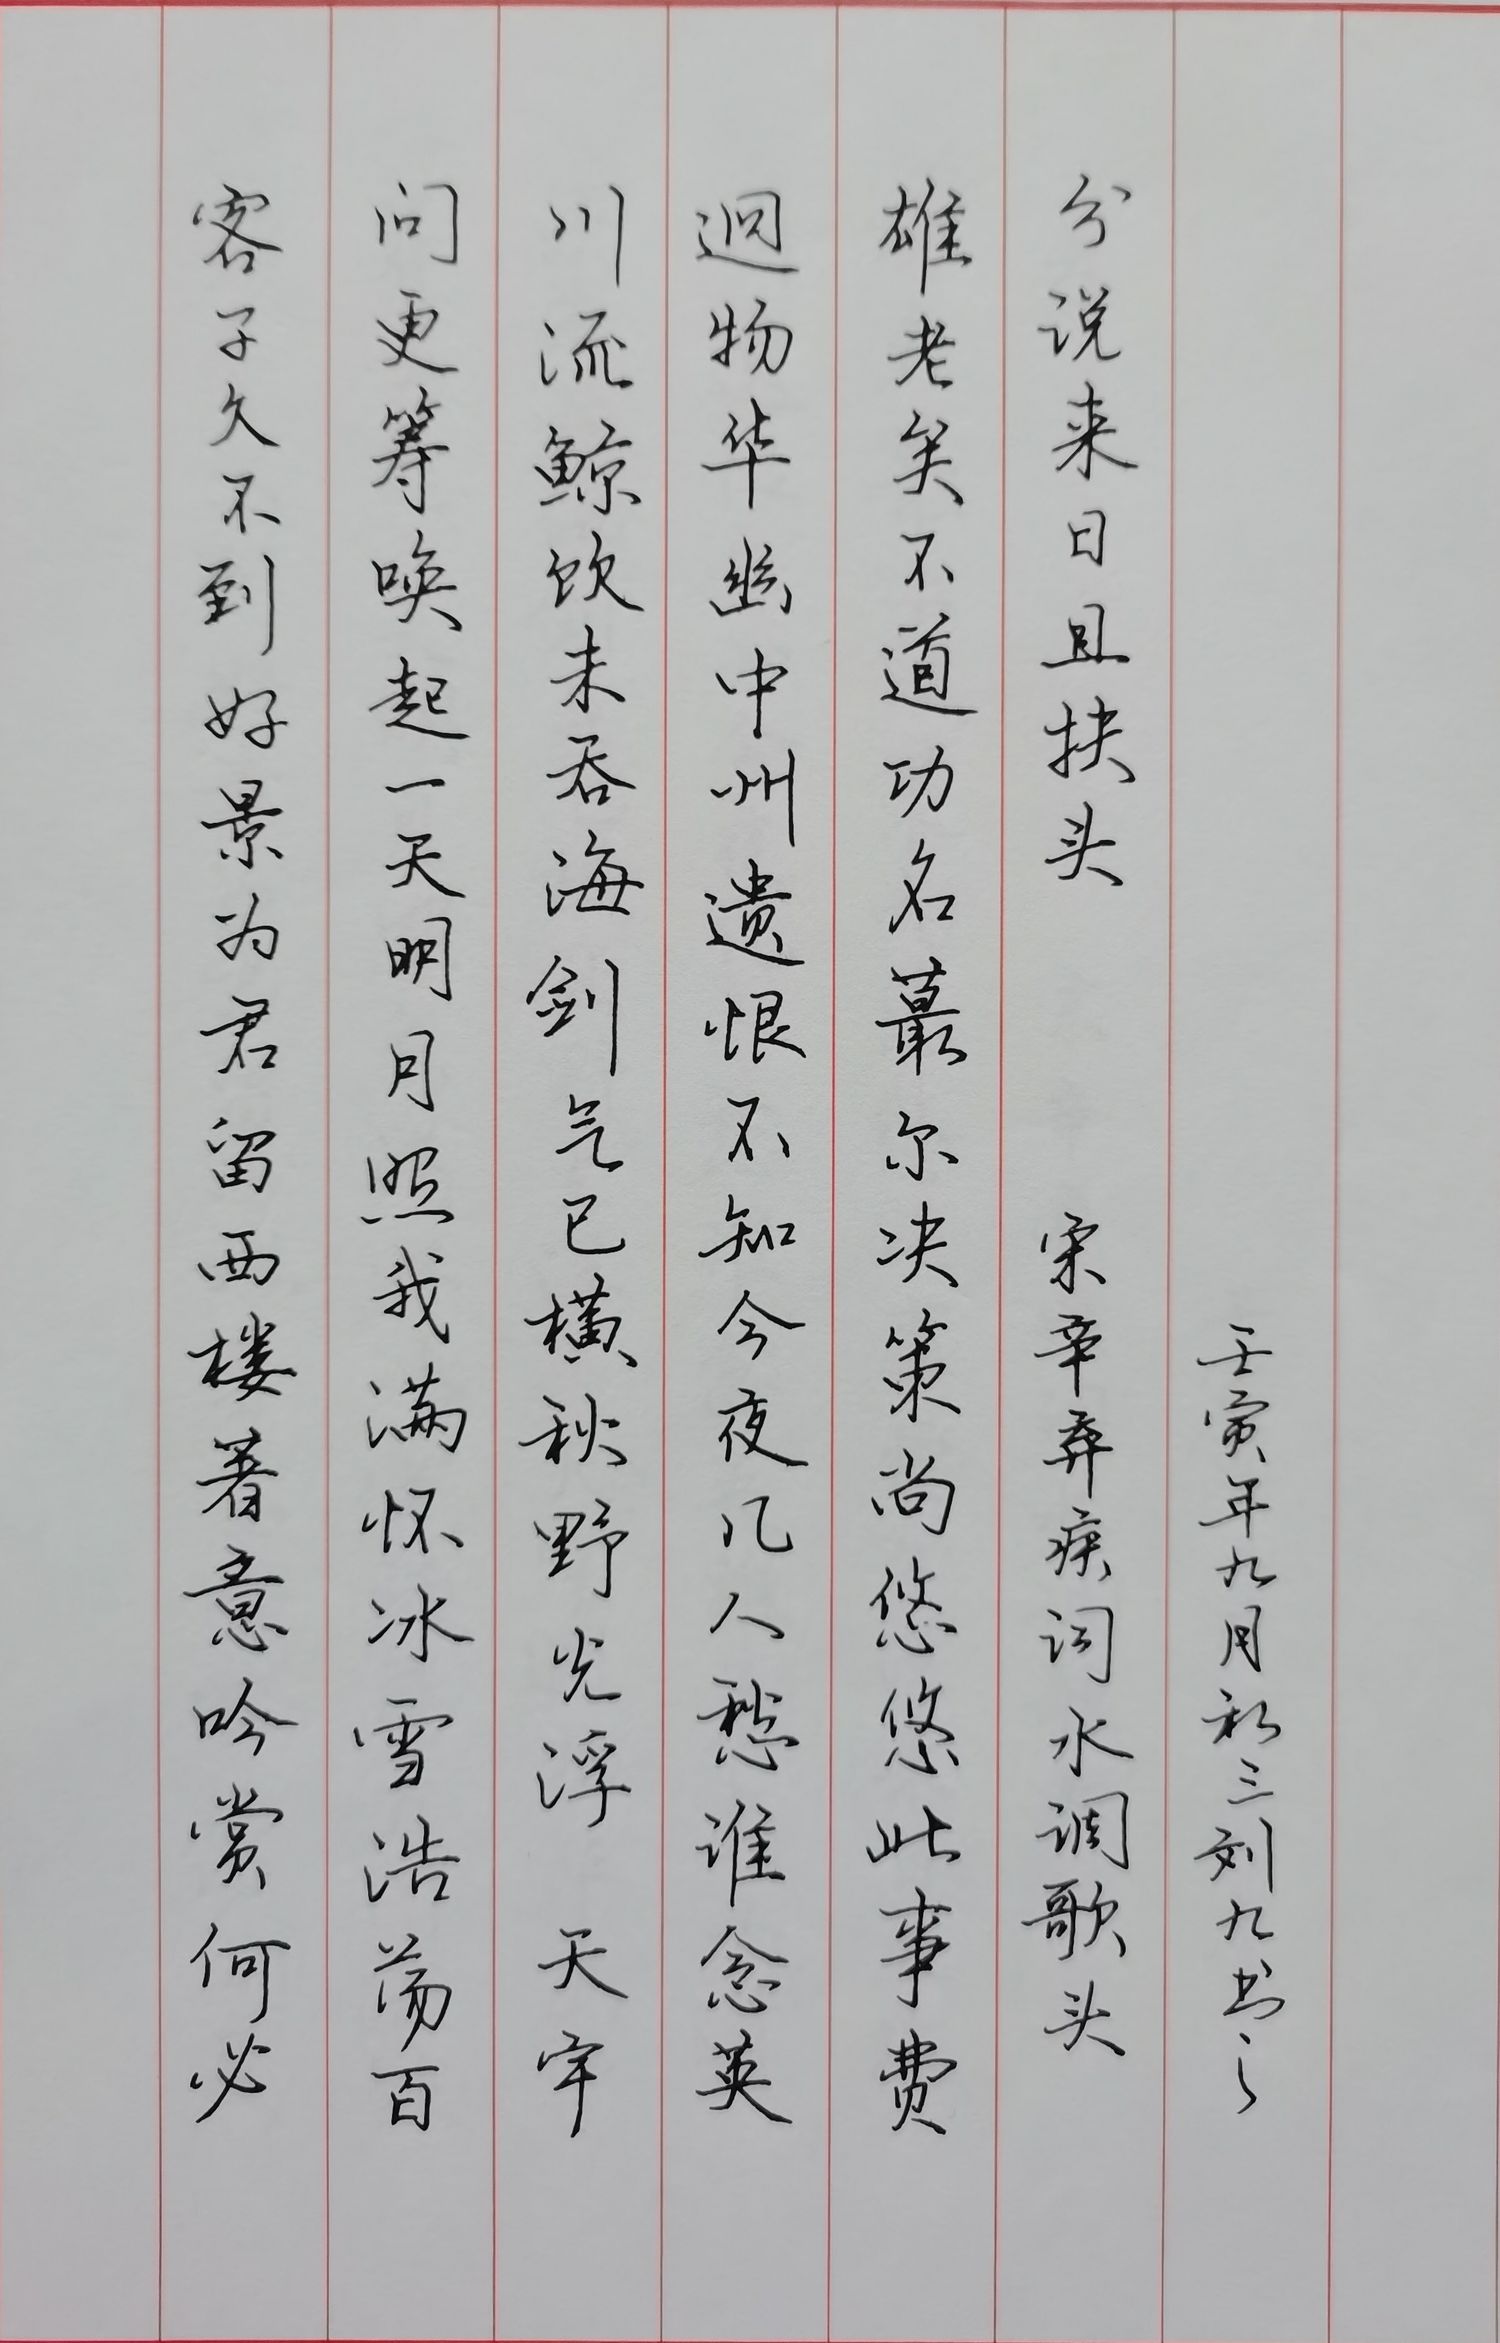 客子久不到好景为君留西楼著意吟赏何必
问更筹唤起一天明月照我满怀冰雪浩荡百
川流鲸饮未吞海剑气已横秋野光浮 天宇
迥物华幽中州遗恨不知今夜几人愁谁念英
雄老矣不道功名蕞尔决策尚悠悠此事费
分说来日且扶头 宋辛弃疾词水调歌头
壬寅年九月初三刘九书之